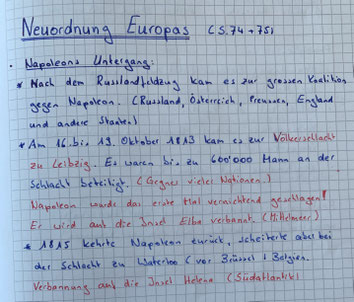 Neuordnung Europas (S.74+75)
Napoleons Untergang:
* Nach dem Russlandfeldzug kam es zur grossen Koalition
gegen Napoleon. (Russland, Österreich, Preussen, England
und andere Staaten)
* Am 16. bis 19. Oktober 1813 kam es zur Völkerschlacht
zu Leibzig. Es waren bis zu 600'000 Mann an der
Schlacht beteiligt. (Gegner vieler Nationen.)
Napoleon wurde das erste Mal vernichtend geschlagen!
Er wird auf die Insel Elba verbannt. (Mittelmeer)
* 1815 kehrte Napoleon zurück, scheiterte aber bei
der Schlacht zu Waterloo (vor Brüssel; Belgien.
Verbannung auf die Insel Helena (Südatlantik)